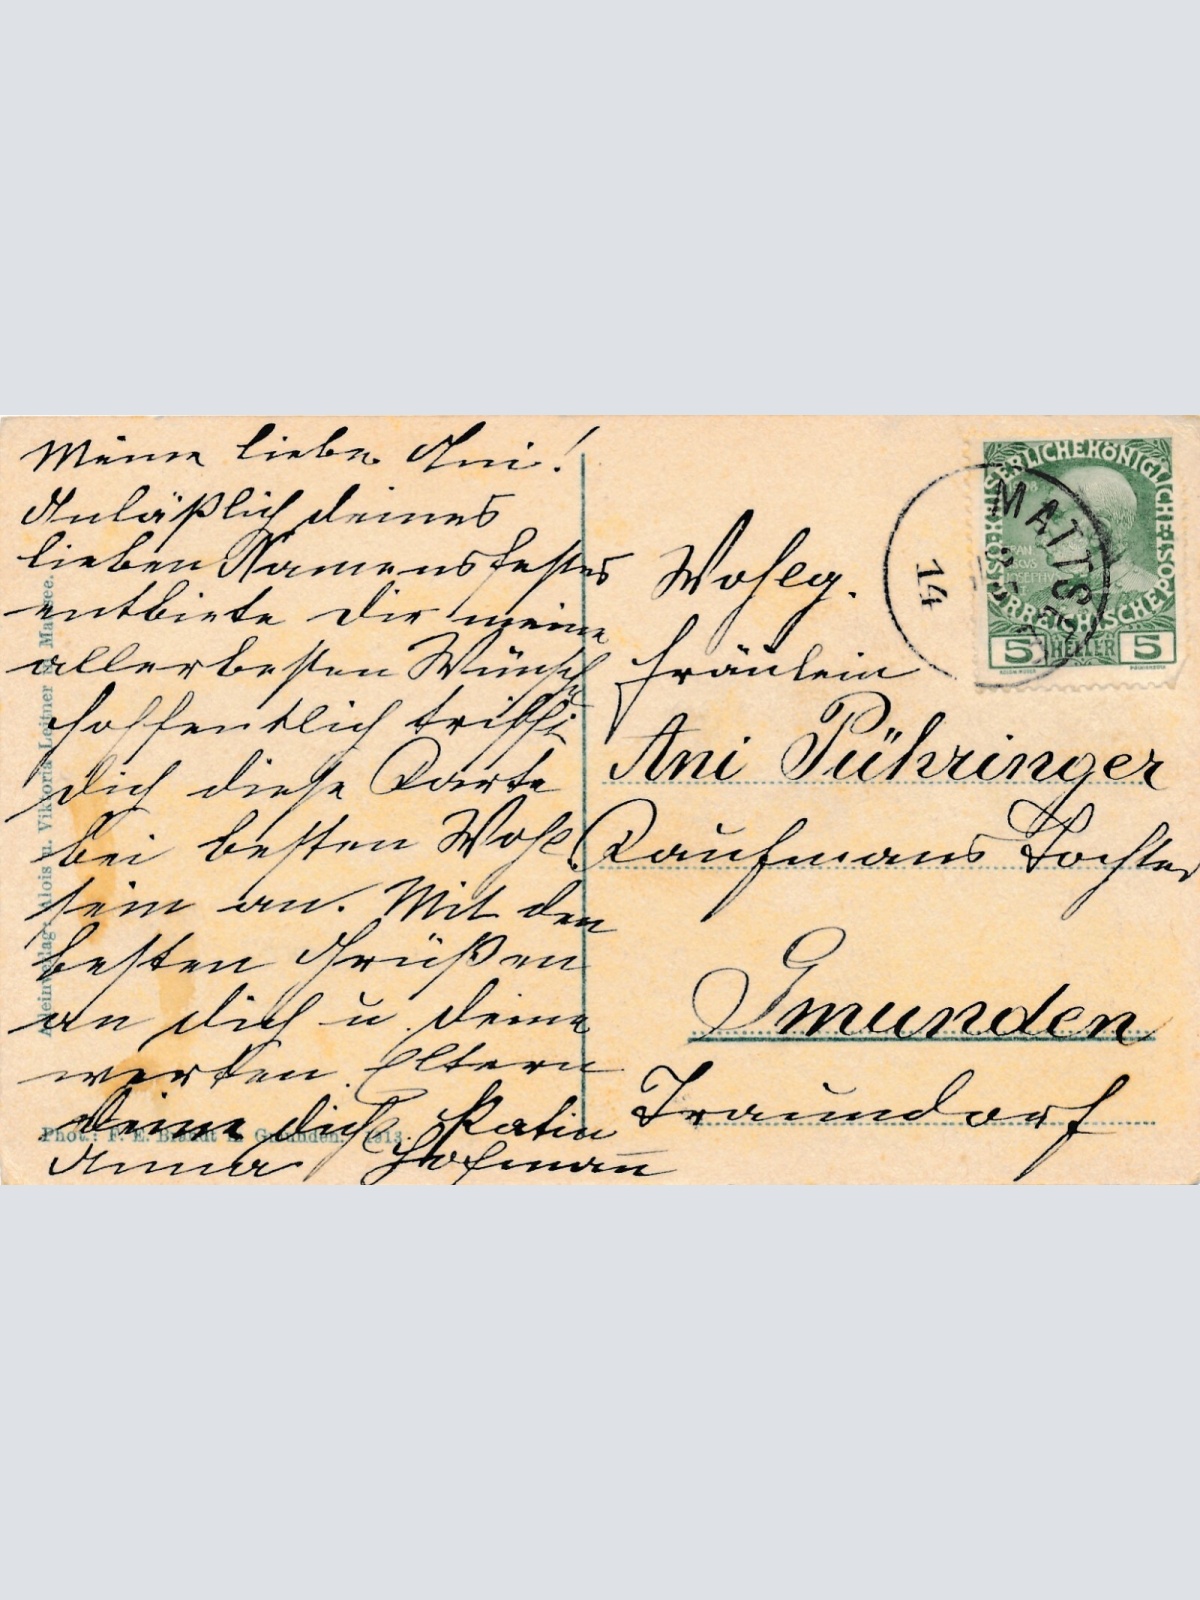 Meine liebe Ani!
Anläßlich deines
lieben Namensfestes
entbiete dir meine
allerbesten Wünsche
hoffentlich trifft
dich diese Karte
bei besten Wohl
sein an. Mit den
besten Grüßen
an dich u. deine
werten Eltern
deine dich Patin
Anna Hofmann
Wohlg.
Fräulein
Ani Pühringer
Kaufmans Tochter
Gmunden
Traundorf
MATTSEE
14
KAISERLICHE KÖNIGLICHE
ÖSTERREICHISCHE POST
5 HELLER 5
Alleinverlag: Alois u. Viktoria Leitner in Mattsee.
Phot.: F. E. Brandt in Gmunden. 1913.